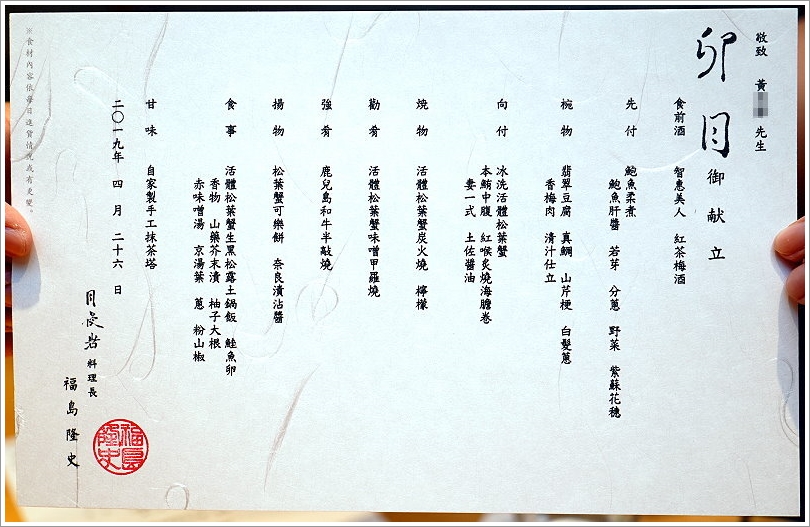 敬致 黃 先生
卯月 御献立
食前酒 智惠美人 紅茶梅酒
先付 鮑魚柔煮
鮑魚肝醬 若芽 分蔥 野菜 紫蘇花穗
椀物 翡翠豆腐 真鯛 山芹梗 白髮蔥
香梅肉 清汁仕立
向付 冰洗活體松葉蟹
本鮪中腹 紅喉炙燒海膽卷
妻一式 土佐醬油
燒物 活體松葉蟹炭火燒 檸檬
勸肴 活體松葉蟹味噌甲羅燒
強肴 鹿兒島和牛半敲燒
揚物 松葉蟹可樂餅 奈良漬沾醬
食事 活體松葉蟹生黑松露土鍋飯 鮭魚卵
香物 山藥芥末漬 柚子大根
赤味噌湯 京湯葉 蔥 粉山椒
甘味 自家製手工抹茶塔
二〇一九年 四月 二十六日
料理長
福島隆史
福島隆史
※食材內容依每日進貨情況或有更變。